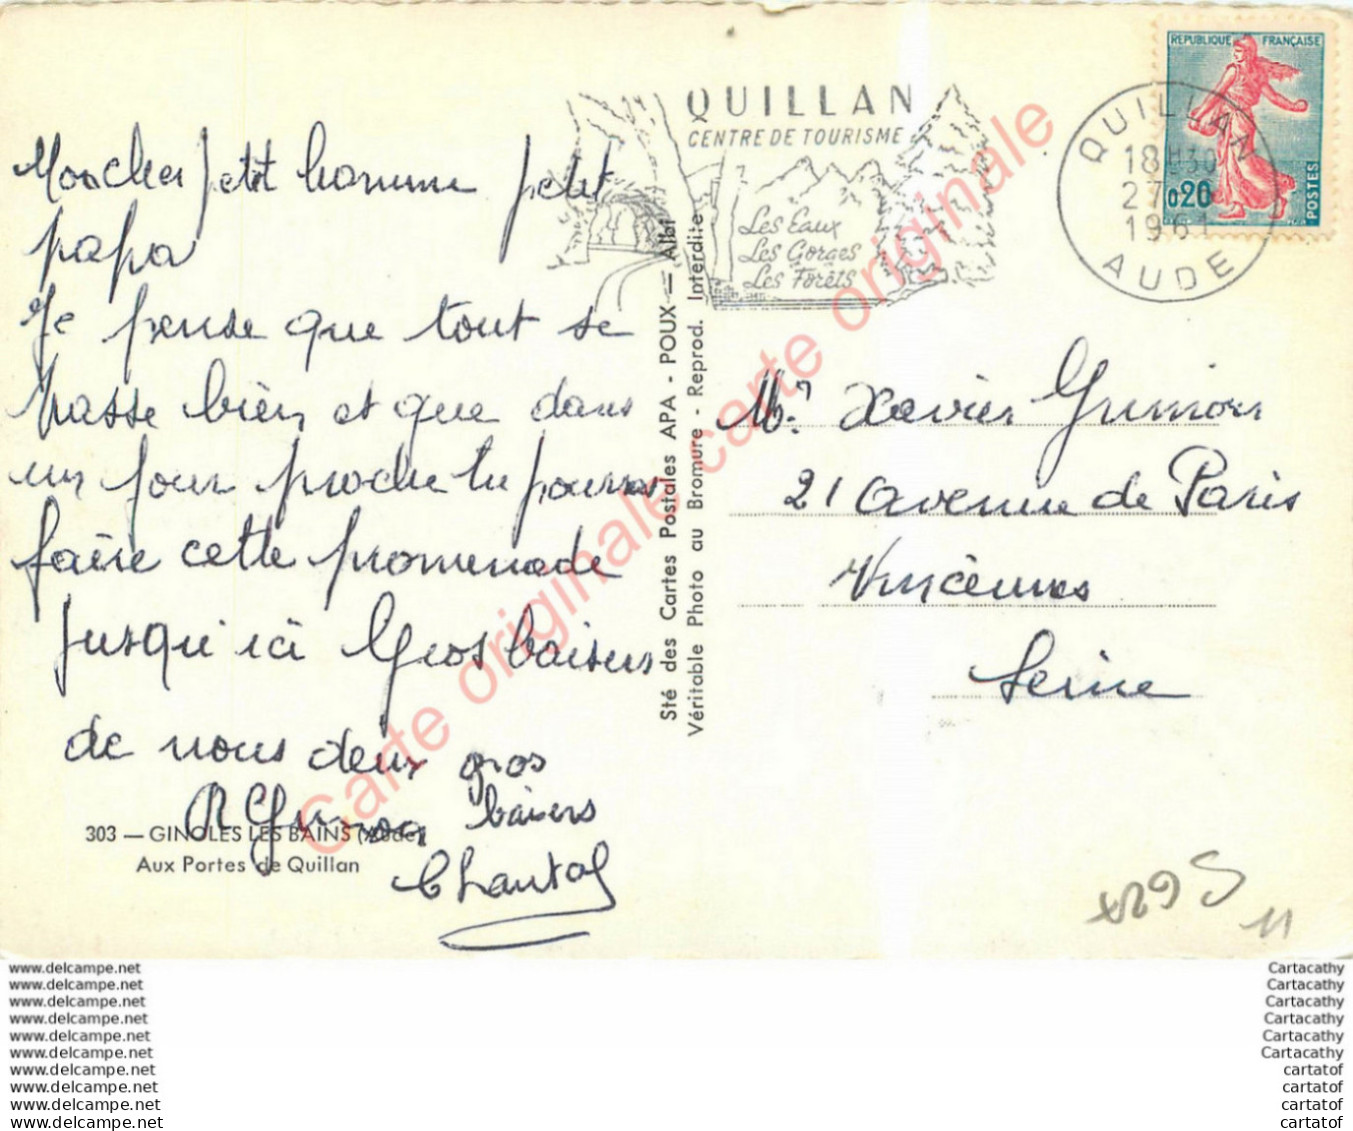 QUILLAN
CENTRE DE TOURISME
Les Eaux
Les Gorges
Les Forêts
REPUBLIQUE FRANÇAISE
0,20
POSTES
QUILLAN
18H30
27
1961
AUDE
Mon cher petit homme petit
papa
Je pense que tout se
passe bien et que dans
un jour proche tu pourras
faire cette promenade
jusqu'ici Gros baisers
de nous deux gros
baisers
Chantal
303 — GINOLES LES BAINS (Aude)
Aux Portes de Quillan
Sté des Cartes Postales APA - POUX — Albi
Véritable Photo au Bromure - Reprod. Interdite
Mr Xavier
21 avenue de Paris
Vincennes
Seine
Carte originale carte originale
11
www.delcampe.net
www.delcampe.net
www.delcampe.net
www.delcampe.net
www.delcampe.net
www.delcampe.net
www.delcampe.net
www.delcampe.net
www.delcampe.net
www.delcampe.net
Cartacathy
Cartacathy
Cartacathy
Cartacathy
Cartacathy
Cartacathy
cartatof
cartatof
cartatof
cartatof